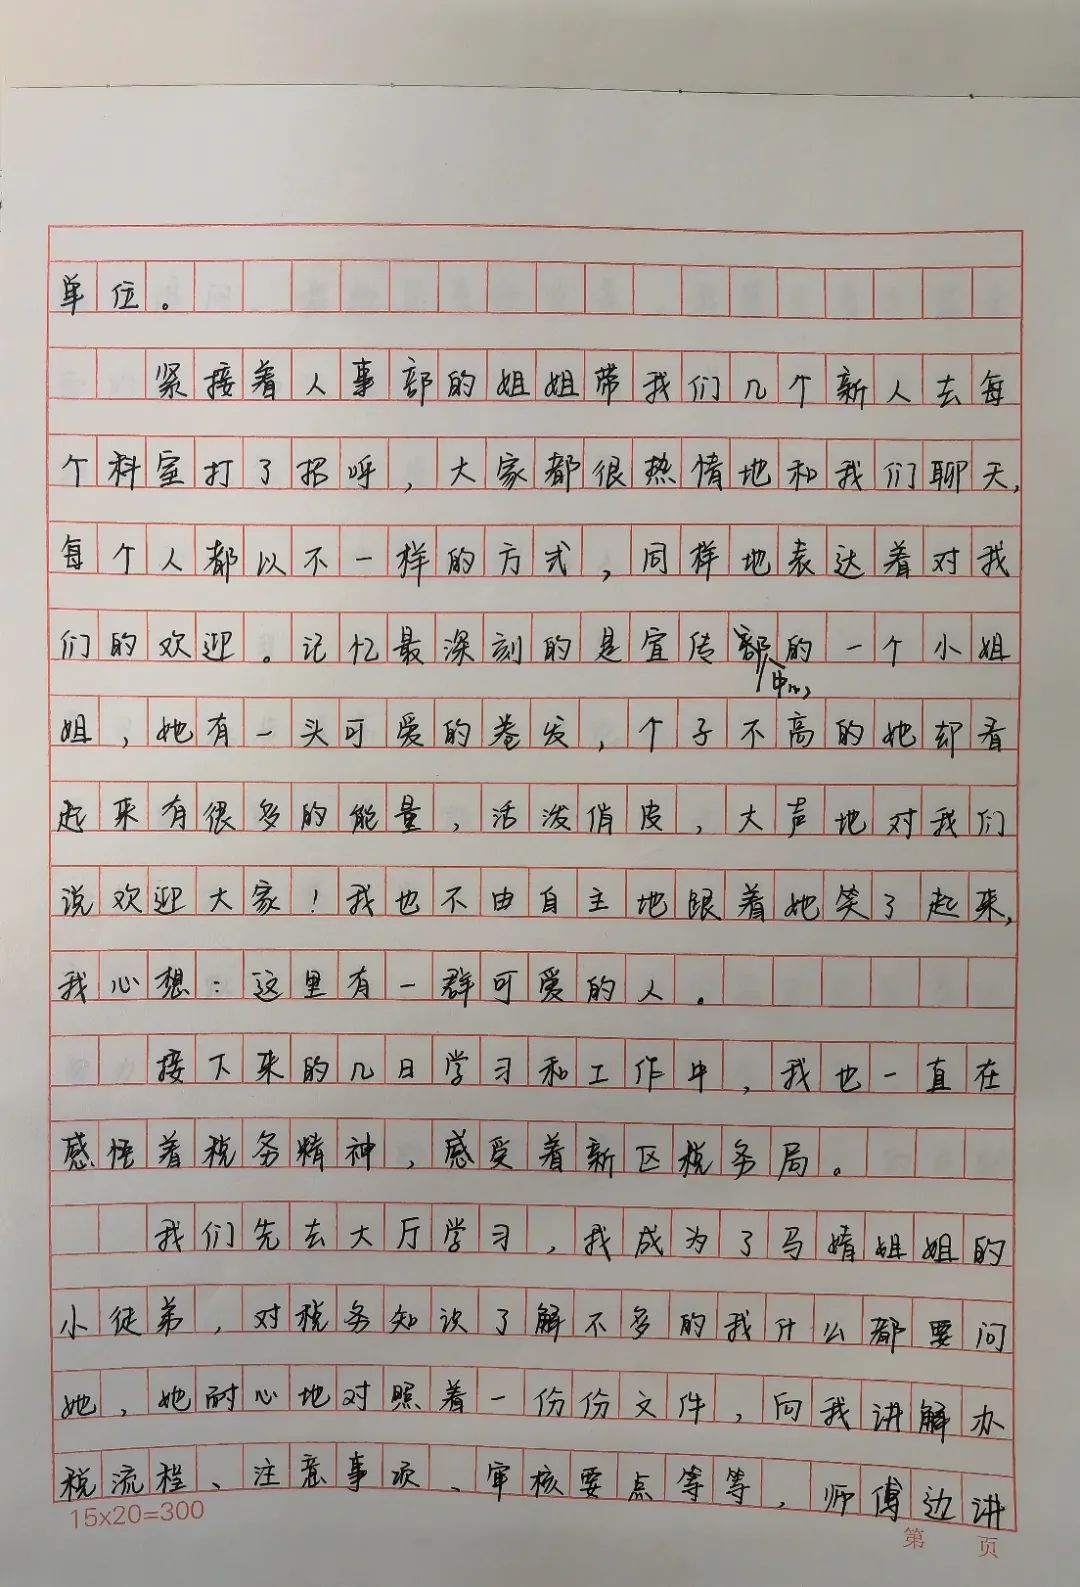 单位。
紧接着人事部的姐姐带我们几个新人去每
个科室打了招呼，大家都很热情地和我们聊天，
每个人都以不一样的方式，同样地表达着对我
们的欢迎。记忆最深刻的是宣传部的一个小姐
中心
姐，她有一头可爱的卷发，个子不高的她却看
起来有很多的能量，活泼俏皮，大声地对我们
说欢迎大家！我也不由自主地跟着她笑了起来，
我心想：这里有一群可爱的人。
接下来的几日学习和工作中，我也一直在
感悟着税务精神，感受着新区税务局。
我们先去大厅学习，我成为了马婧姐姐的
小徒弟，对税务知识了解不多的我什么都要问
她，她耐心地对照着一份份文件，向我讲解办
税流程、注意事项、审核要点等等，师傅边讲
15x20=300
第 页